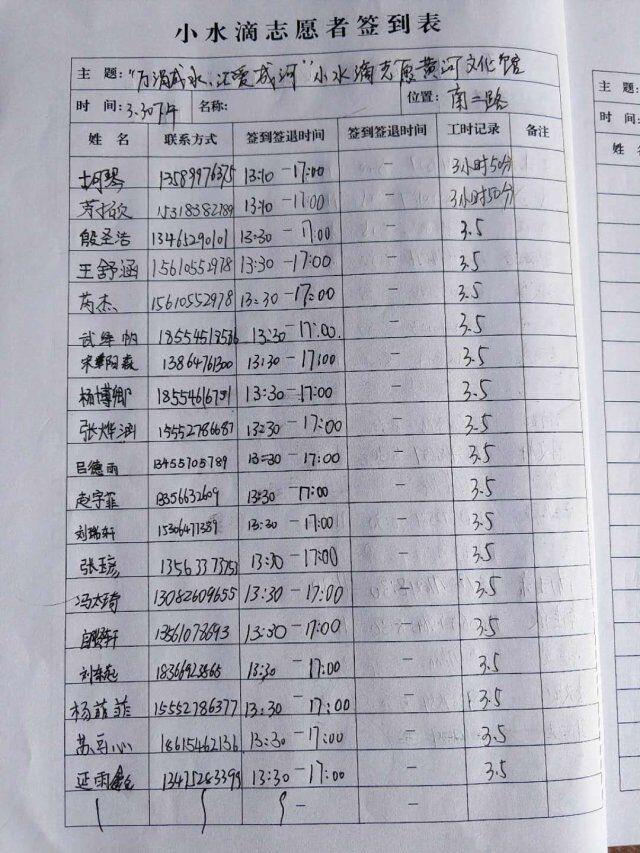 小水滴志愿者签到表
主 题: 小水滴志愿黄河文化馆
时 间: 3.30下午 名称: 位置: 南二路
姓 名 联系方式 签到签退时间 签到签退时间 工时记录 备注
胡琴 13589976375 13:10-17:00 - 3小时50分
15318382789 13:10-17:00 - 3小时50分
殷圣浩 13465290101 13:30-17:00 - 3.5
王舒涵 15610552978 13:30-17:00 - 3.5
芮杰 15610552978 13:30-17:00 - 3.5
武绎帆 18554513536 13:30-17:00 - 3.5
13864761300 13:30-17:00 - 3.5
杨博卿 13:30-17:00 - 3.5
张烨涵 15552786687 13:30-17:00 - 3.5
吕德雨 13455705789 13:30-17:00 - 3.5
赵宇菲 13:30-17:00 - 3.5
刘瑞轩 13:30-17:00 - 3.5
13:30-17:00 - 3.5
冯太琦 13082609655 13:30-17:00 - 3.5
13561073693 13:30-17:00 - 3.5
13:30-17:00 - 3.5
杨菲菲 15552786377 13:30-17:00 - 3.5
18615462136 13:30-17:00 - 3.5
延雨鑫 13475283399 13:30-17:00 - 3.5
- -
主 题:
时 间:
姓 名